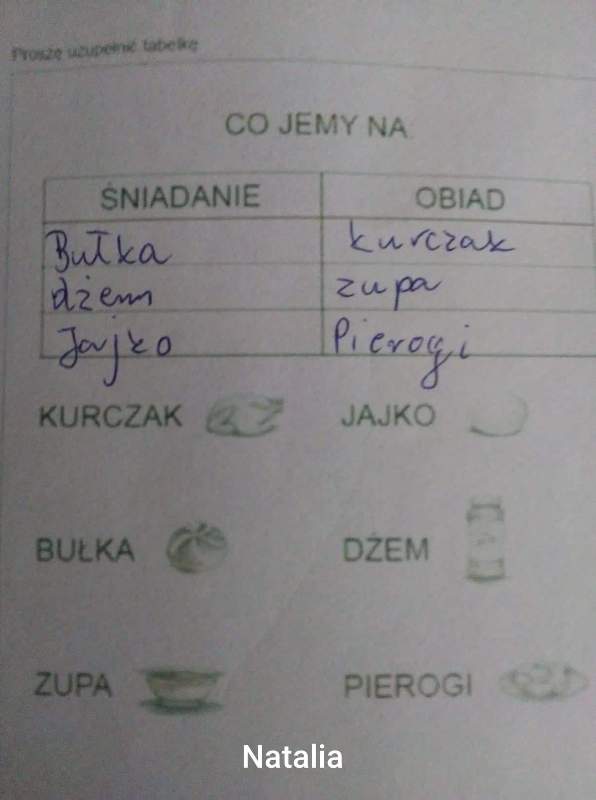 Proszę uzupełnić tabelkę
CO JEMY NA
ŚNIADANIE OBIAD
Bułka kurczak
dżem zupa
Jajko Pierogi
KURCZAK JAJKO
BUŁKA DŻEM
ZUPA PIEROGI
Natalia